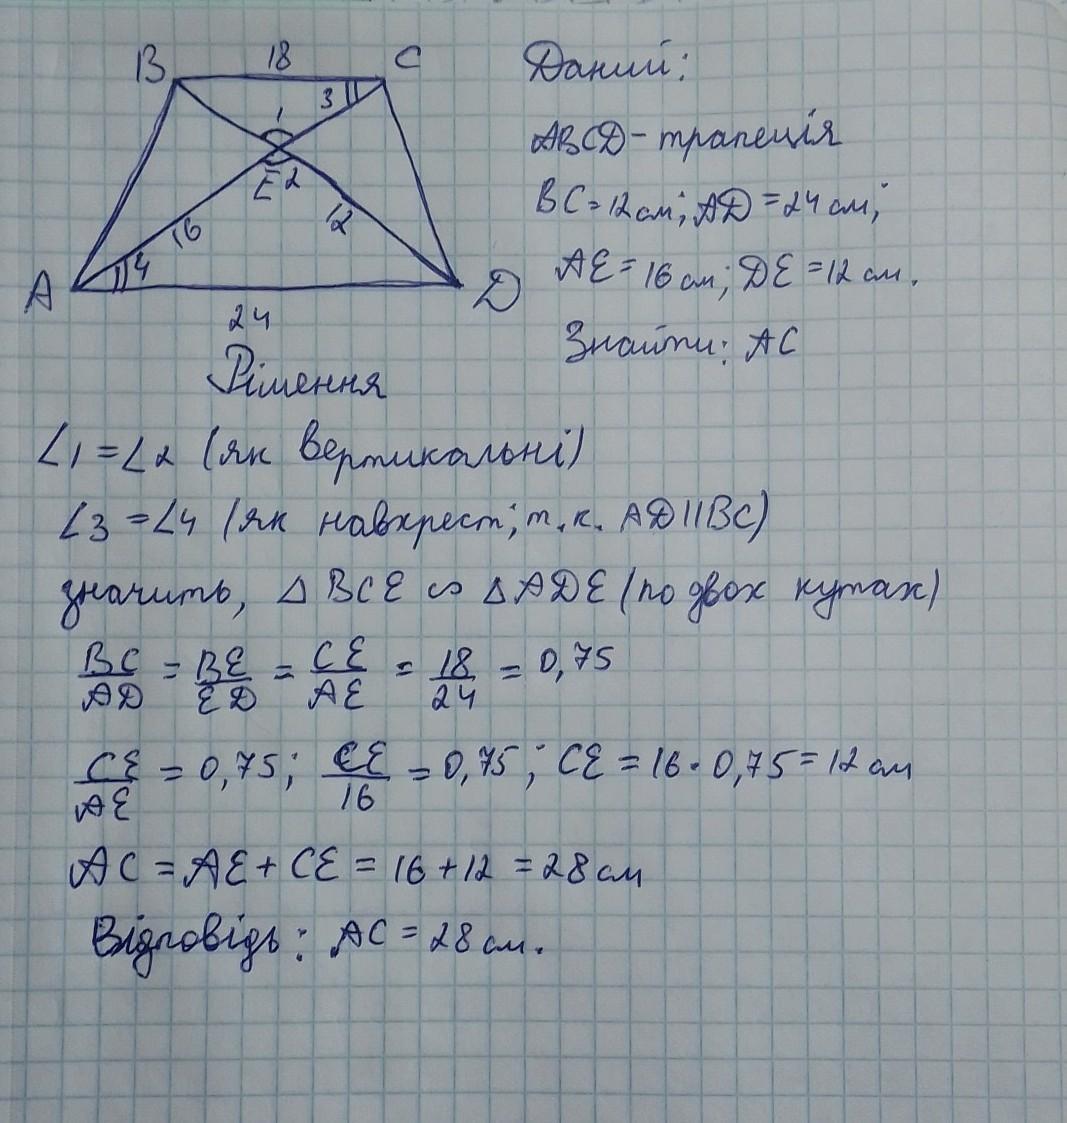 B 18 C
3
1
E 2
16 12
4
A D
24
Даний:
ABCD - трапеція
BC = 12 см; AD = 24 см;
AE = 16 см; DE = 12 см.
Знайти: AC
Рішення
∠1 = ∠2 (як вертикальні)
∠3 = ∠4 (як навхрест; т.к. AD || BC)
значить, △ BCE ∽ △ ADE (по двох кутах)
BC/AD = BE/ED = CE/AE = 18/24 = 0,75
CE/AE = 0,75; CE/16 = 0,75; CE = 16 · 0,75 = 12 см
AC = AE + CE = 16 + 12 = 28 см
Відповідь: AC = 28 см.